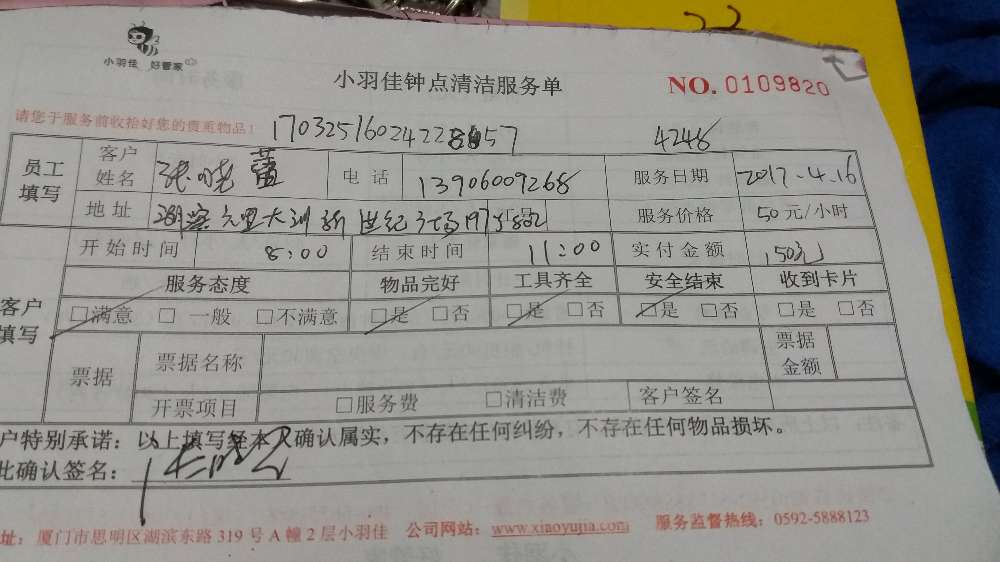 小羽佳 好管家
小羽佳钟点清洁服务单 NO. 0109820
请您于服务前收拾好您的贵重物品！ 4248
员工填写 客户姓名 张晓蕾 电话 13906009268 服务日期 2017.4.16
地址 世纪 服务价格 50元/小时
开始时间 8:00 结束时间 11:00 实付金额 150元
客户填写 服务态度 物品完好 工具齐全 安全结束 收到卡片
□满意 □一般 □不满意 □是 □否 □是 □否 □是 □否 □是 □否
票据 票据名称 票据金额
开票项目 □服务费 □清洁费 客户签名
户特别承诺：以上填写经本人确认属实，不存在任何纠纷，不存在任何物品损坏。
此确认签名：
址：厦门市思明区湖滨东路319号A幢2层小羽佳 公司网站：www.xiaoyujia.com 服务监督热线：0592-5888123